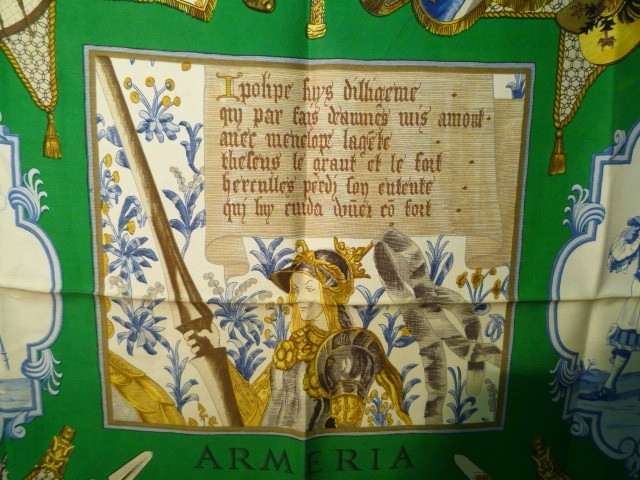 Ipolipe suys dilligente
qui par fais d'armes mis amort
auec menelope lagete
theseus le grant et le fort
herculles perdi son entente
qui luy cuida dõner cõ fort
ARMERIA